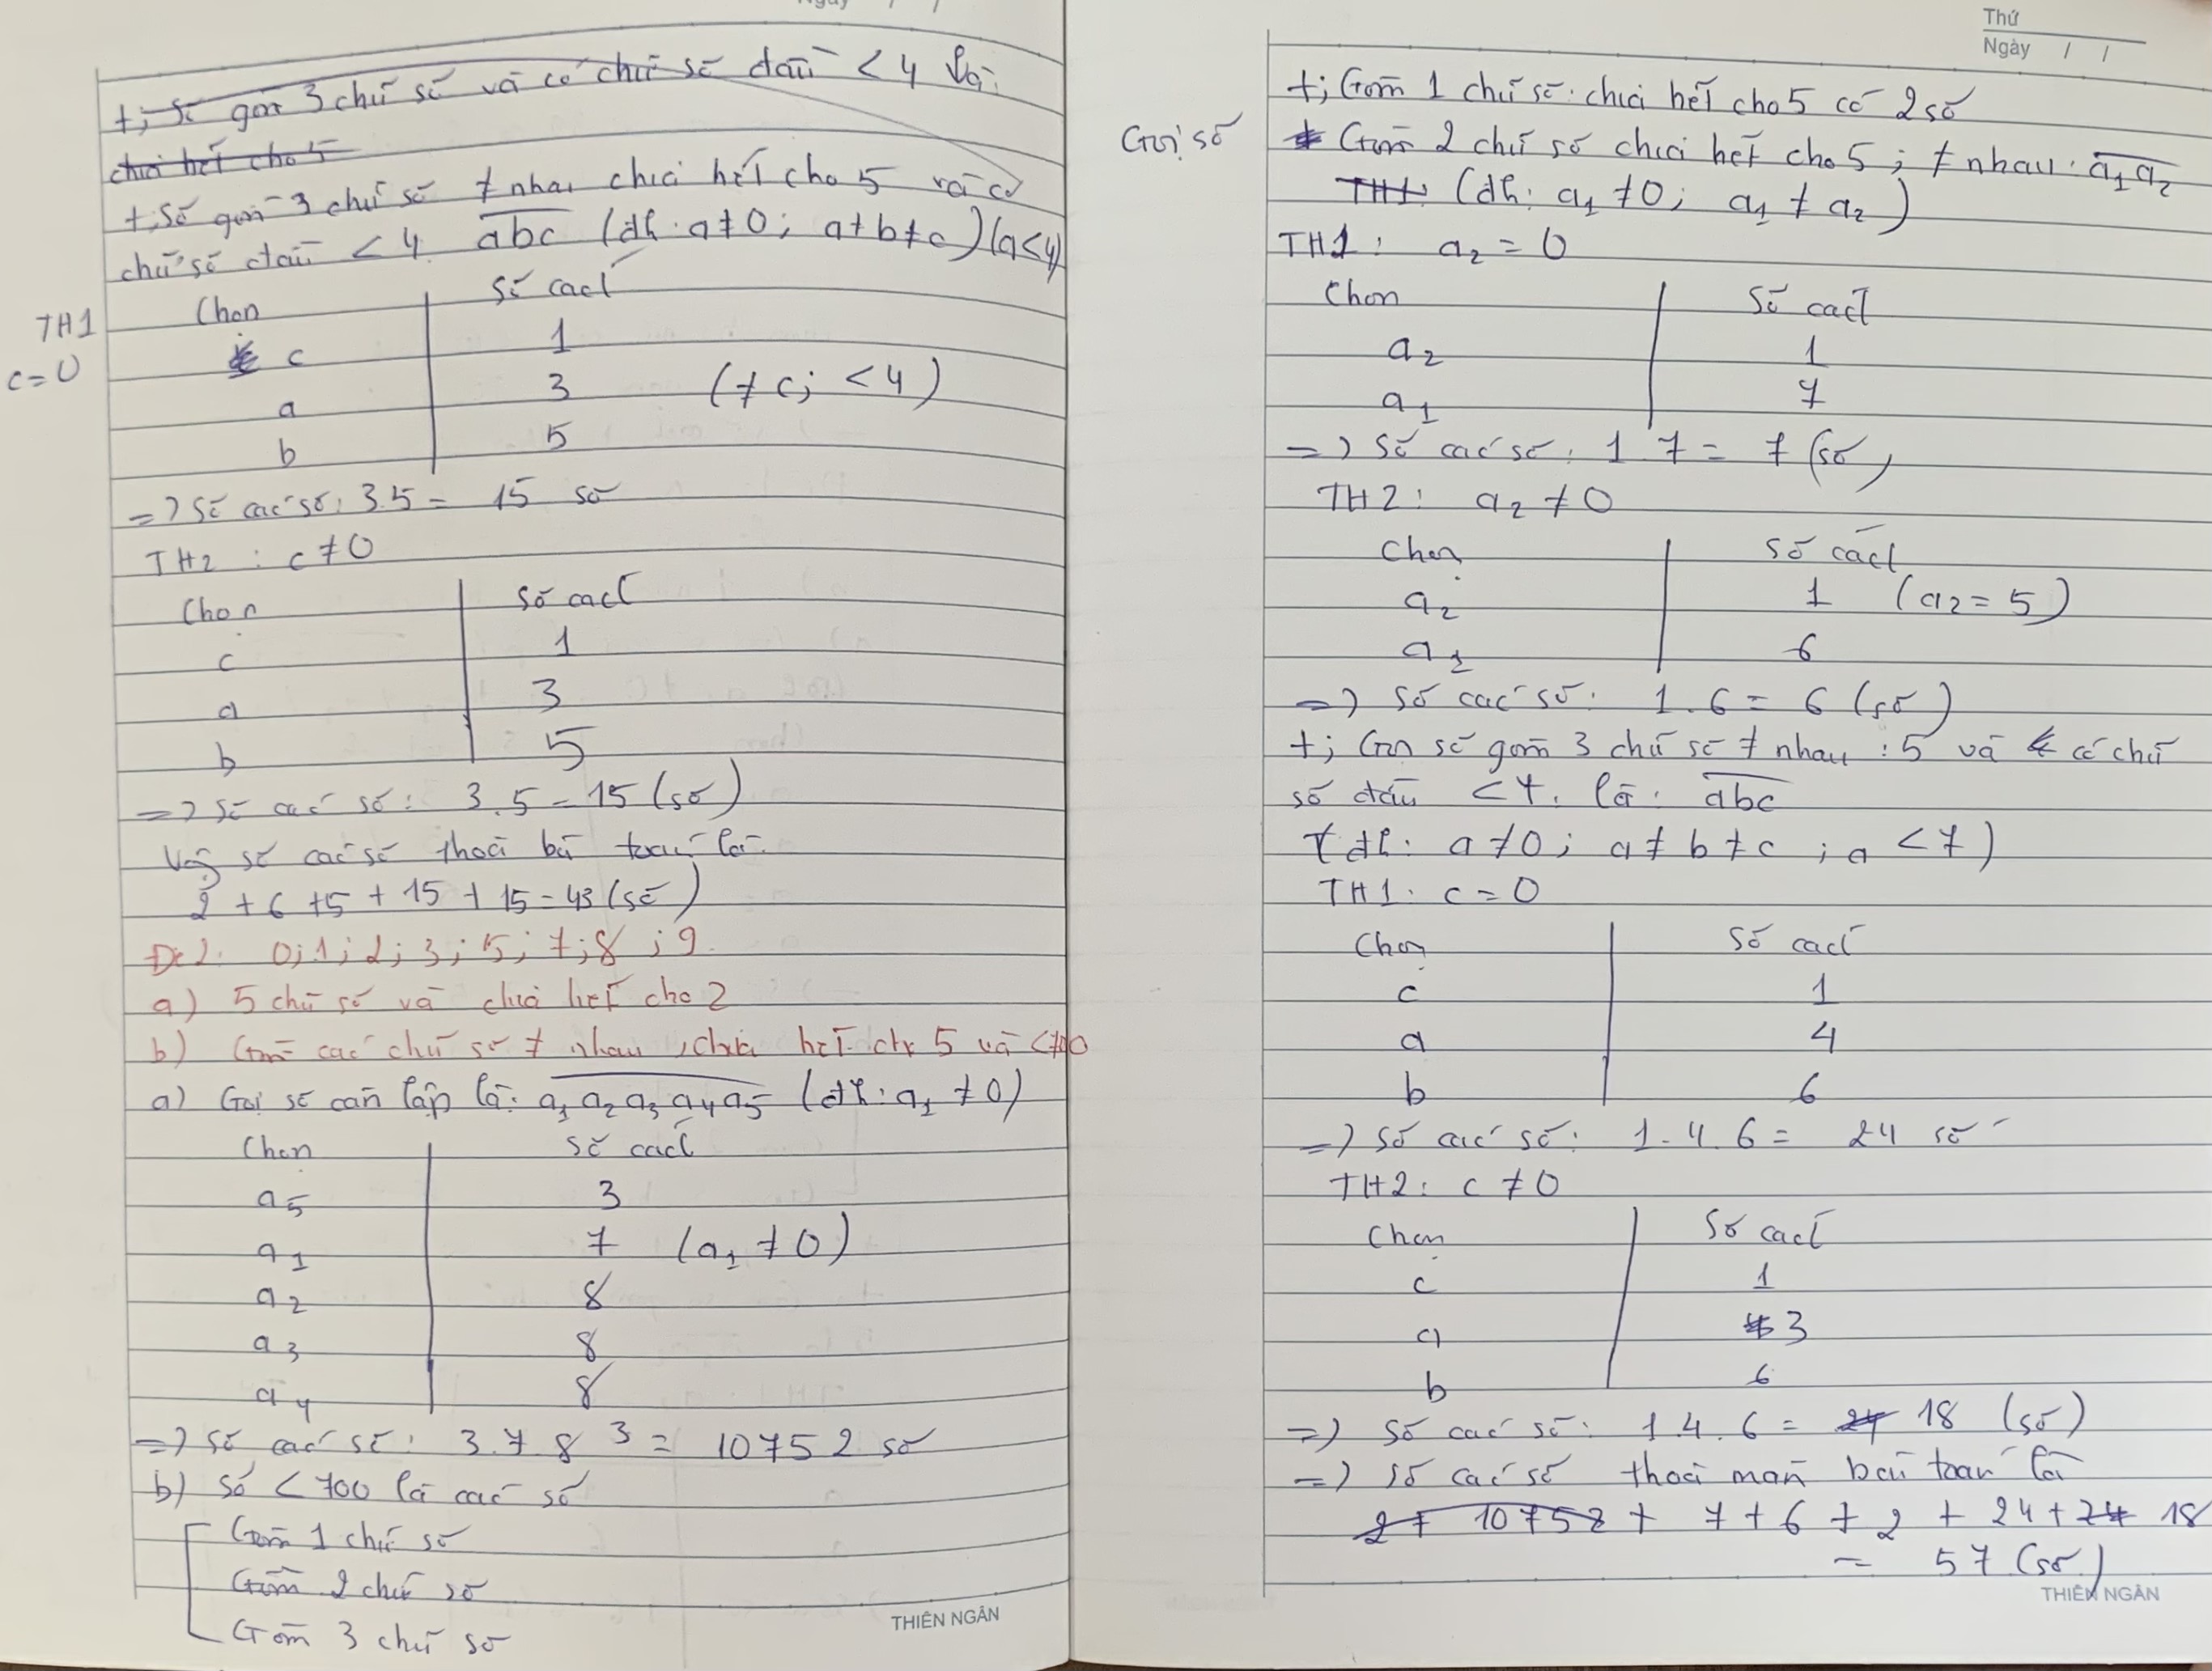 Ngày / /
+; Số gồm 3 chữ số và có chữ số đầu < 4 và:
chia hết cho 5
+; Số gồm 3 chữ số ≠ nhau chia hết cho 5 và có
chữ số đầu < 4. abc (đk: a≠0; a≠b≠c) (a<4)
TH1
c=0
Chọn | Số cách
c | 1
a | 3 (≠ c; < 4)
b | 5
=) Số các số: 3.5 = 15 số
TH2 : c ≠ 0
Chọn | Số cách
c | 1
a | 3
b | 5
=) Số các số: 3.5 = 15 (số)
Vậy số các số thoả bài toán là:
2 + 6 + 5 + 15 + 15 = 43 (số)
Đề 2: 0; 1; 2; 3; 5; 7; 8; 9.
a) 5 chữ số và chia hết cho 2
b) Gồm các chữ số ≠ nhau, chia hết cho 5 và <700
a) Gọi số cần lập là: a1 a2 a3 a4 a5 (đk: a1 ≠ 0)
Chọn | Số cách
a5 | 3
a1 | 7 (a1 ≠ 0)
a2 | 8
a3 | 8
a4 | 8
=) Số các số: 3.7.8³ = 10752 số
b) Số < 700 là các số
Gồm 1 chữ số
Gồm 2 chữ số
Gồm 3 chữ số
THIÊN NGÂN
Thứ
Ngày / /
+; Gồm 1 chữ số: chia hết cho 5 có 2 số
Gọi số
+ Gồm 2 chữ số chia hết cho 5; ≠ nhau: a1a2
TH1: (đk: a1 ≠ 0; a1 ≠ a2)
TH1: a2 = 0
Chọn | Số cách
a2 | 1
a1 | 7
=) Số các số: 1.7 = 7 (số)
TH2: a2 ≠ 0
Chọn | Số cách
a2 | 1 (a2 = 5)
a1 | 6
=) Số các số: 1.6 = 6 (số)
+; Gọi số gồm 3 chữ số ≠ nhau : 5 và có chữ
số đầu <7. là: abc
(đk: a ≠ 0; a ≠ b ≠ c ; a < 7)
TH1: c = 0
Chọn | Số cách
c | 1
a | 4
b | 6
=) Số các số: 1.4.6 = 24 số
TH2: c ≠ 0
Chọn | Số cách
c | 1
a | 3
b | 6
=) Số các số: 1.4.6 = 24 18 (số)
=) Số các số thoả mãn bài toán là
2 + 10752 + 7 + 6 + 2 + 24 + 24 18
= 57 (số)
THIÊN NGÂN